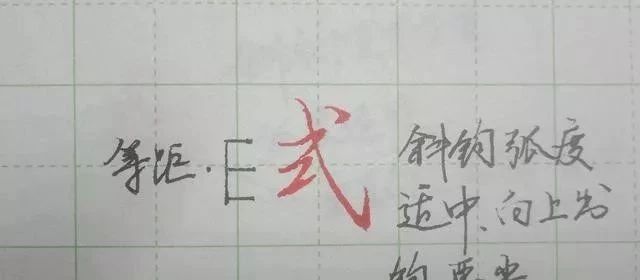 等距.E式
斜钩弧度
适中、向上出
钩要尖